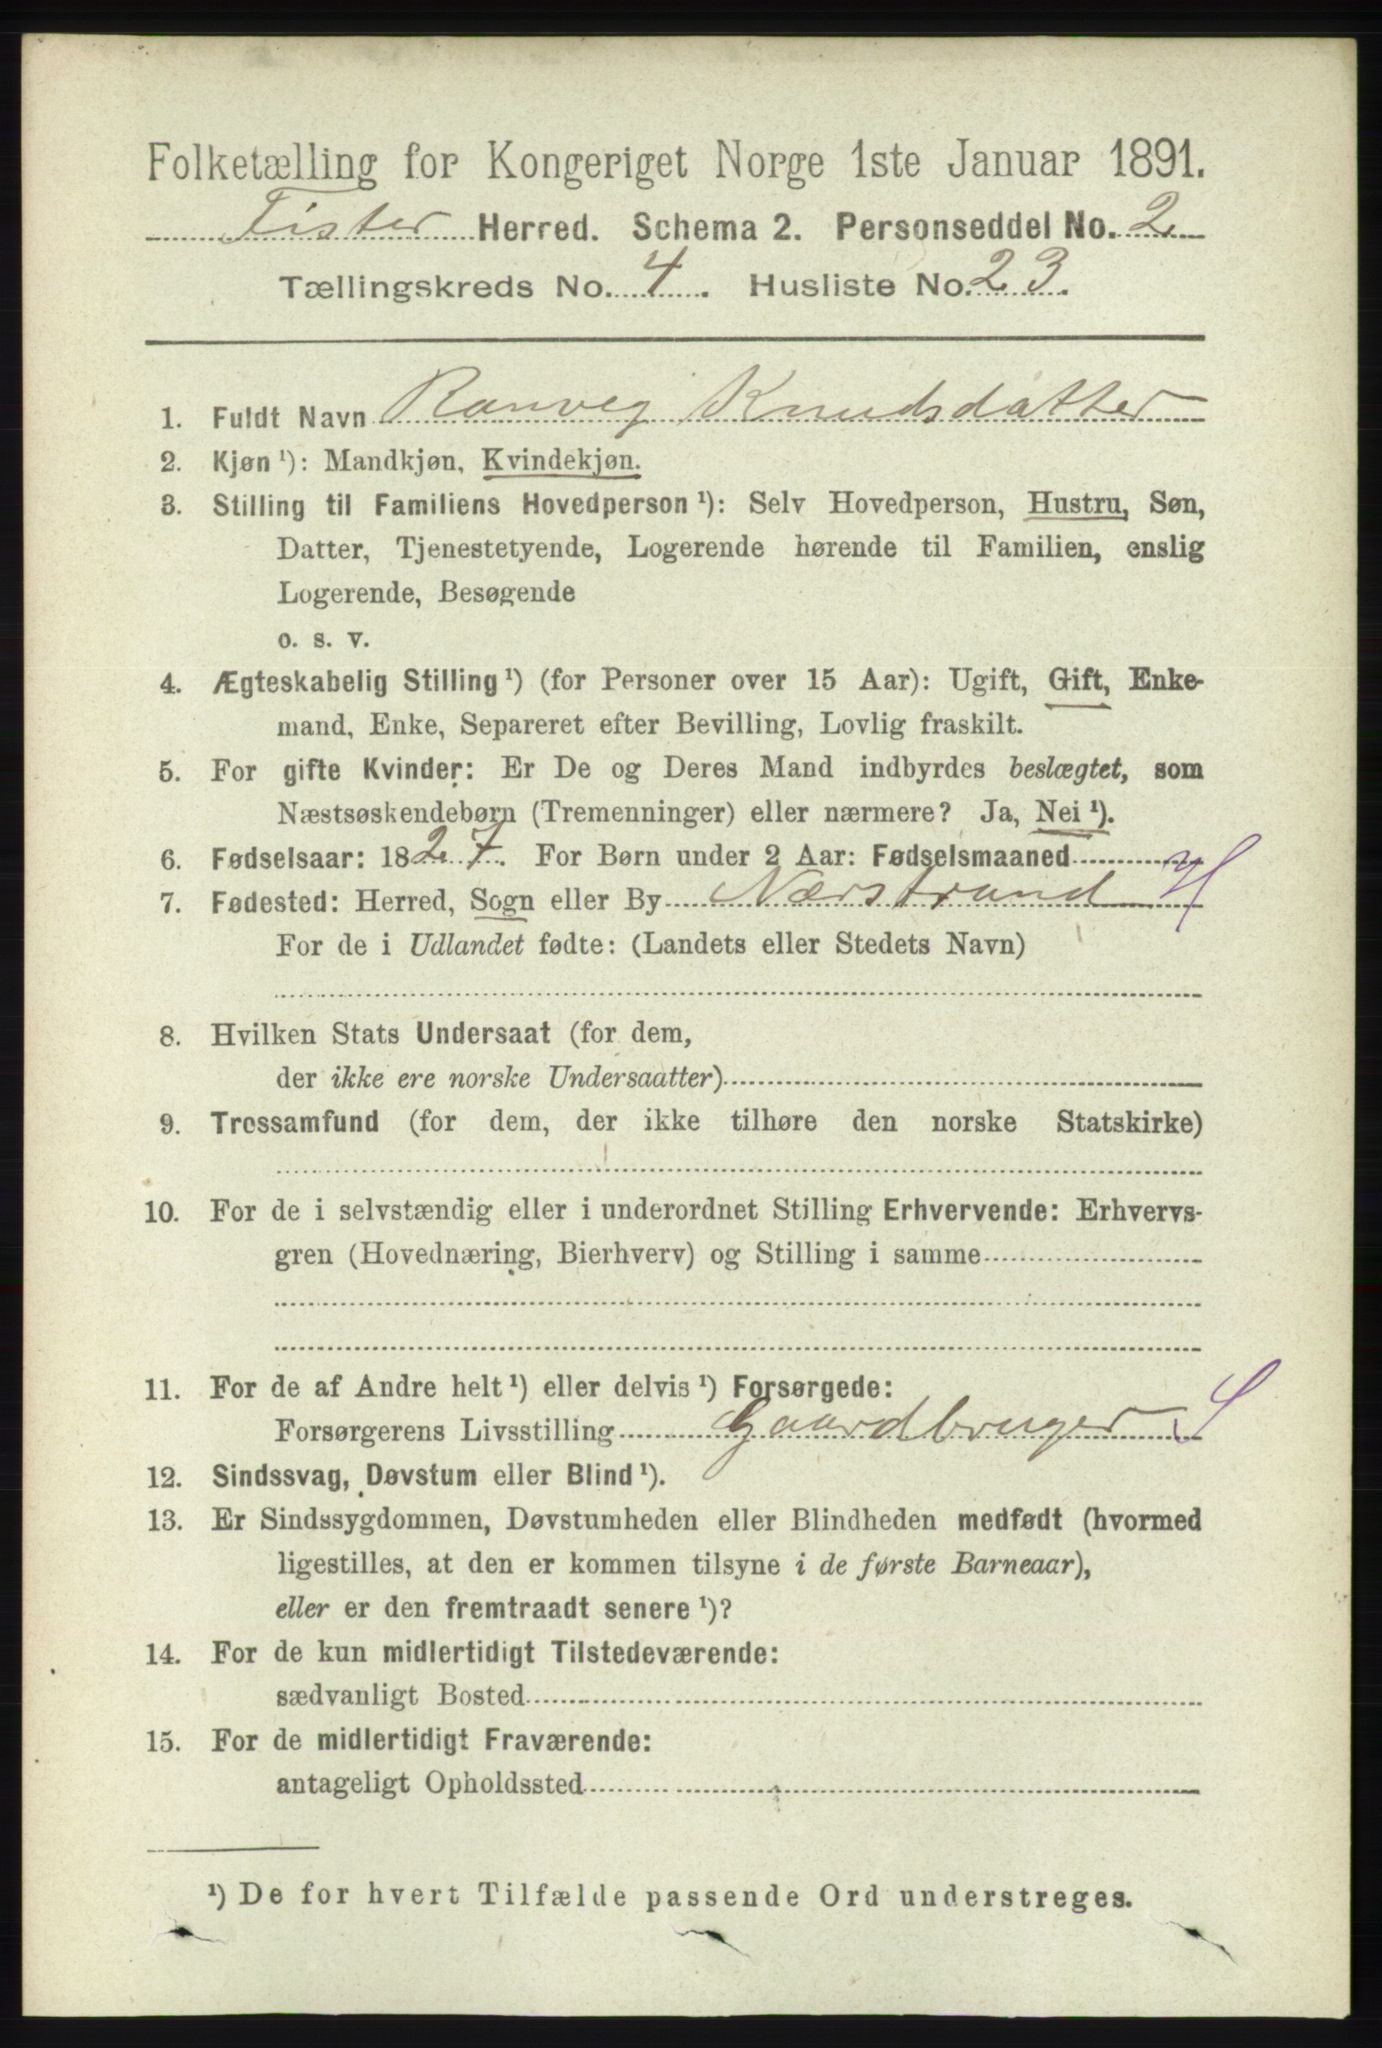 Folketælling for Kongeriget Norge 1ste Januar 1891.
Fister Herred. Schema 2. Personseddel No. 2.
Tællingskreds No. 4. Husliste No. 23.
1. Fuldt Navn Ranveg Knudsdatter
2. Kjøn ¹): Mandkjøn, Kvindekjøn.
3. Stilling til Familiens Hovedperson ¹): Selv Hovedperson, Hustru, Søn,
Datter, Tjenestetyende, Logerende hørende til Familien, enslig
Logerende, Besøgende
o. s. v.
4. Ægteskabelig Stilling ¹) (for Personer over 15 Aar): Ugift, Gift, Enke-
mand, Enke, Separeret efter Bevilling, Lovlig fraskilt.
5. For gifte Kvinder: Er De og Deres Mand indbyrdes beslægtet, som
Næstsøskendebørn (Tremenninger) eller nærmere? Ja, Nei ¹).
6. Fødselsaar: 1827. For Børn under 2 Aar: Fødselsmaaned
7. Fødested: Herred, Sogn eller By Nærstrand H
For de i Udlandet fødte: (Landets eller Stedets Navn)
8. Hvilken Stats Undersaat (for dem,
der ikke ere norske Undersaatter)
9. Trossamfund (for dem, der ikke tilhøre den norske Statskirke)
10. For de i selvstændig eller i underordnet Stilling Erhvervende: Erhvervs-
gren (Hovednæring, Bierhverv) og Stilling i samme
11. For de af Andre helt ¹) eller delvis ¹) Forsørgede:
Forsørgerens Livsstilling Gaardbruger S
12. Sindssvag, Døvstum eller Blind ¹).
13. Er Sindssygdommen, Døvstumheden eller Blindheden medfødt (hvormed
ligestilles, at den er kommen tilsyne i de første Barneaar),
eller er den fremtraadt senere ¹)?
14. For de kun midlertidigt Tilstedeværende:
sædvanligt Bosted
15. For de midlertidigt Fraværende:
antageligt Opholdssted
¹) De for hvert Tilfælde passende Ord understreges.